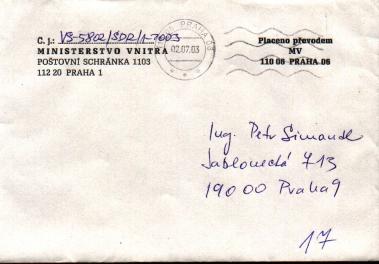 Č. j.: VS-5802/ŠDR/1-2003
MINISTERSTVO VNITRA
POŠTOVNÍ SCHRÁNKA 1103
112 20 PRAHA 1
PRAHA 06
02.07.03
Placeno převodem
MV
110 06 PRAHA 06
Ing. Petr Šimandl
Jablonecká 713
190 00 Praha 9
17